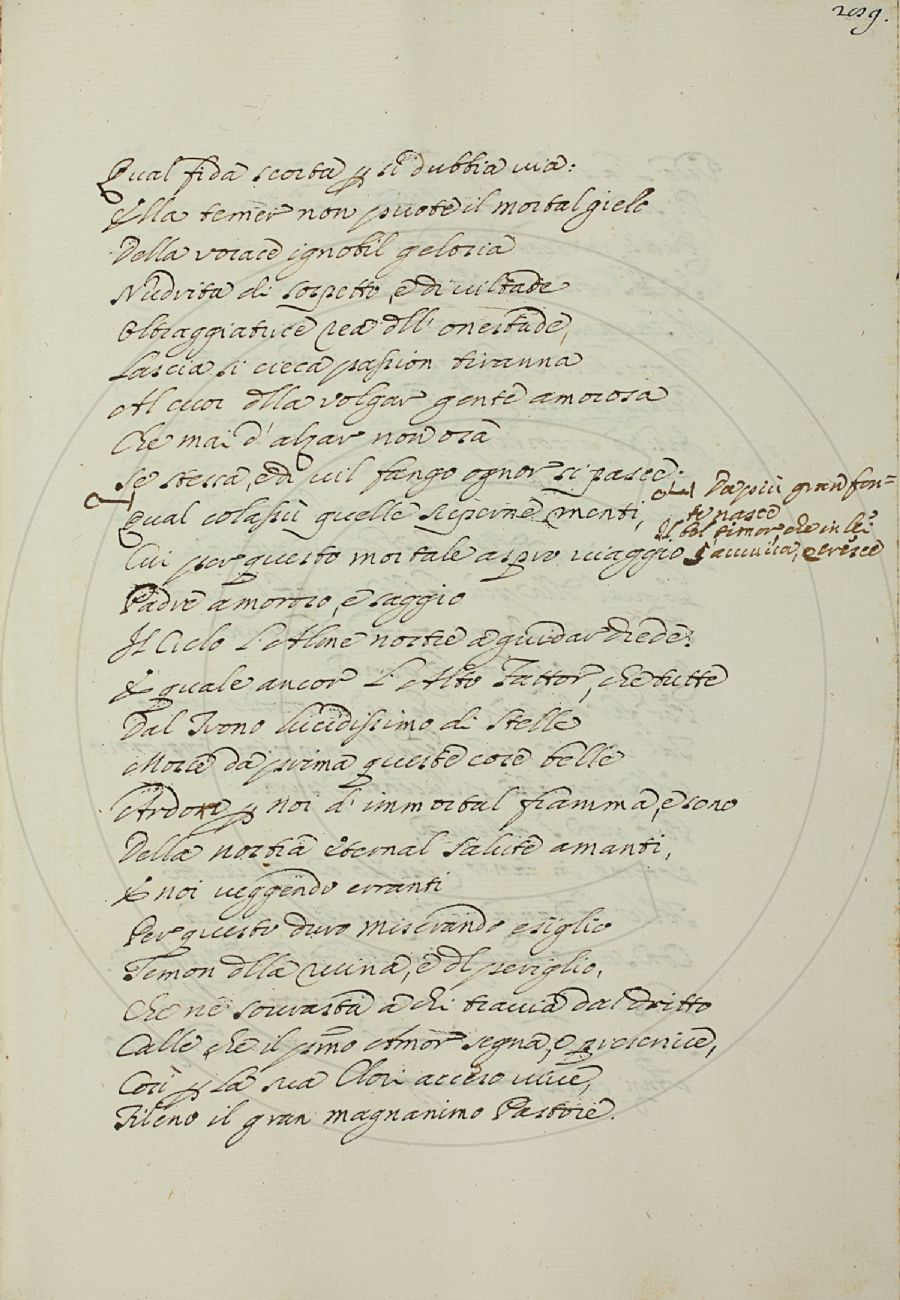 209.
Qual fida scorta p sì dubbia via:
Ella temer non puote il mortal gielo
Della vorace ignobil gelosia
Nudrita di sospetto, e di viltade
Oltraggiatrice rea dll' onestade,
Lascia sì cieca passion tiranna
Al cuor dlla volgar gente amorosa
Che mai d'alzar non osa
Se stessa, e di vil fango ognor si pasce:
Da più gran fon=
te nasce
Il bel timor, che in lei
s'avviva, e cresce
Qual colassù quelle superne menti,
Cui per questo mortale aspro viaggio
Padre amoroso, e saggio
Il Cielo l'Alme nostre a guidar diede:
E quale ancor l'Alto Fattor, che tutte
Dal Trono lucidissimo di Stelle
Mosse da prima queste cose belle
Ardono p noi d'immortal fiamma, e sono
Della nostra eternal salute amanti,
E noi veggendo erranti
Per questo duro miserando esiglio
Temon dlla ruina, e dl periglio,
Che ne sovrasta a chi travia dal dritto
Calle, che il pmo Amor segna, e prescrive,
Così p la sua Clori acceso vive,
Fileno il gran magnanimo Pastore.